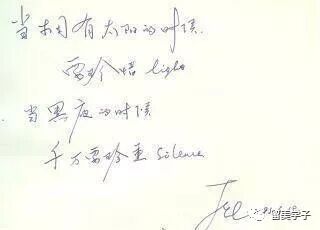 当有太阳的时候
要珍惜 light
当黑夜的时候
千万要珍重 silence
留美学子